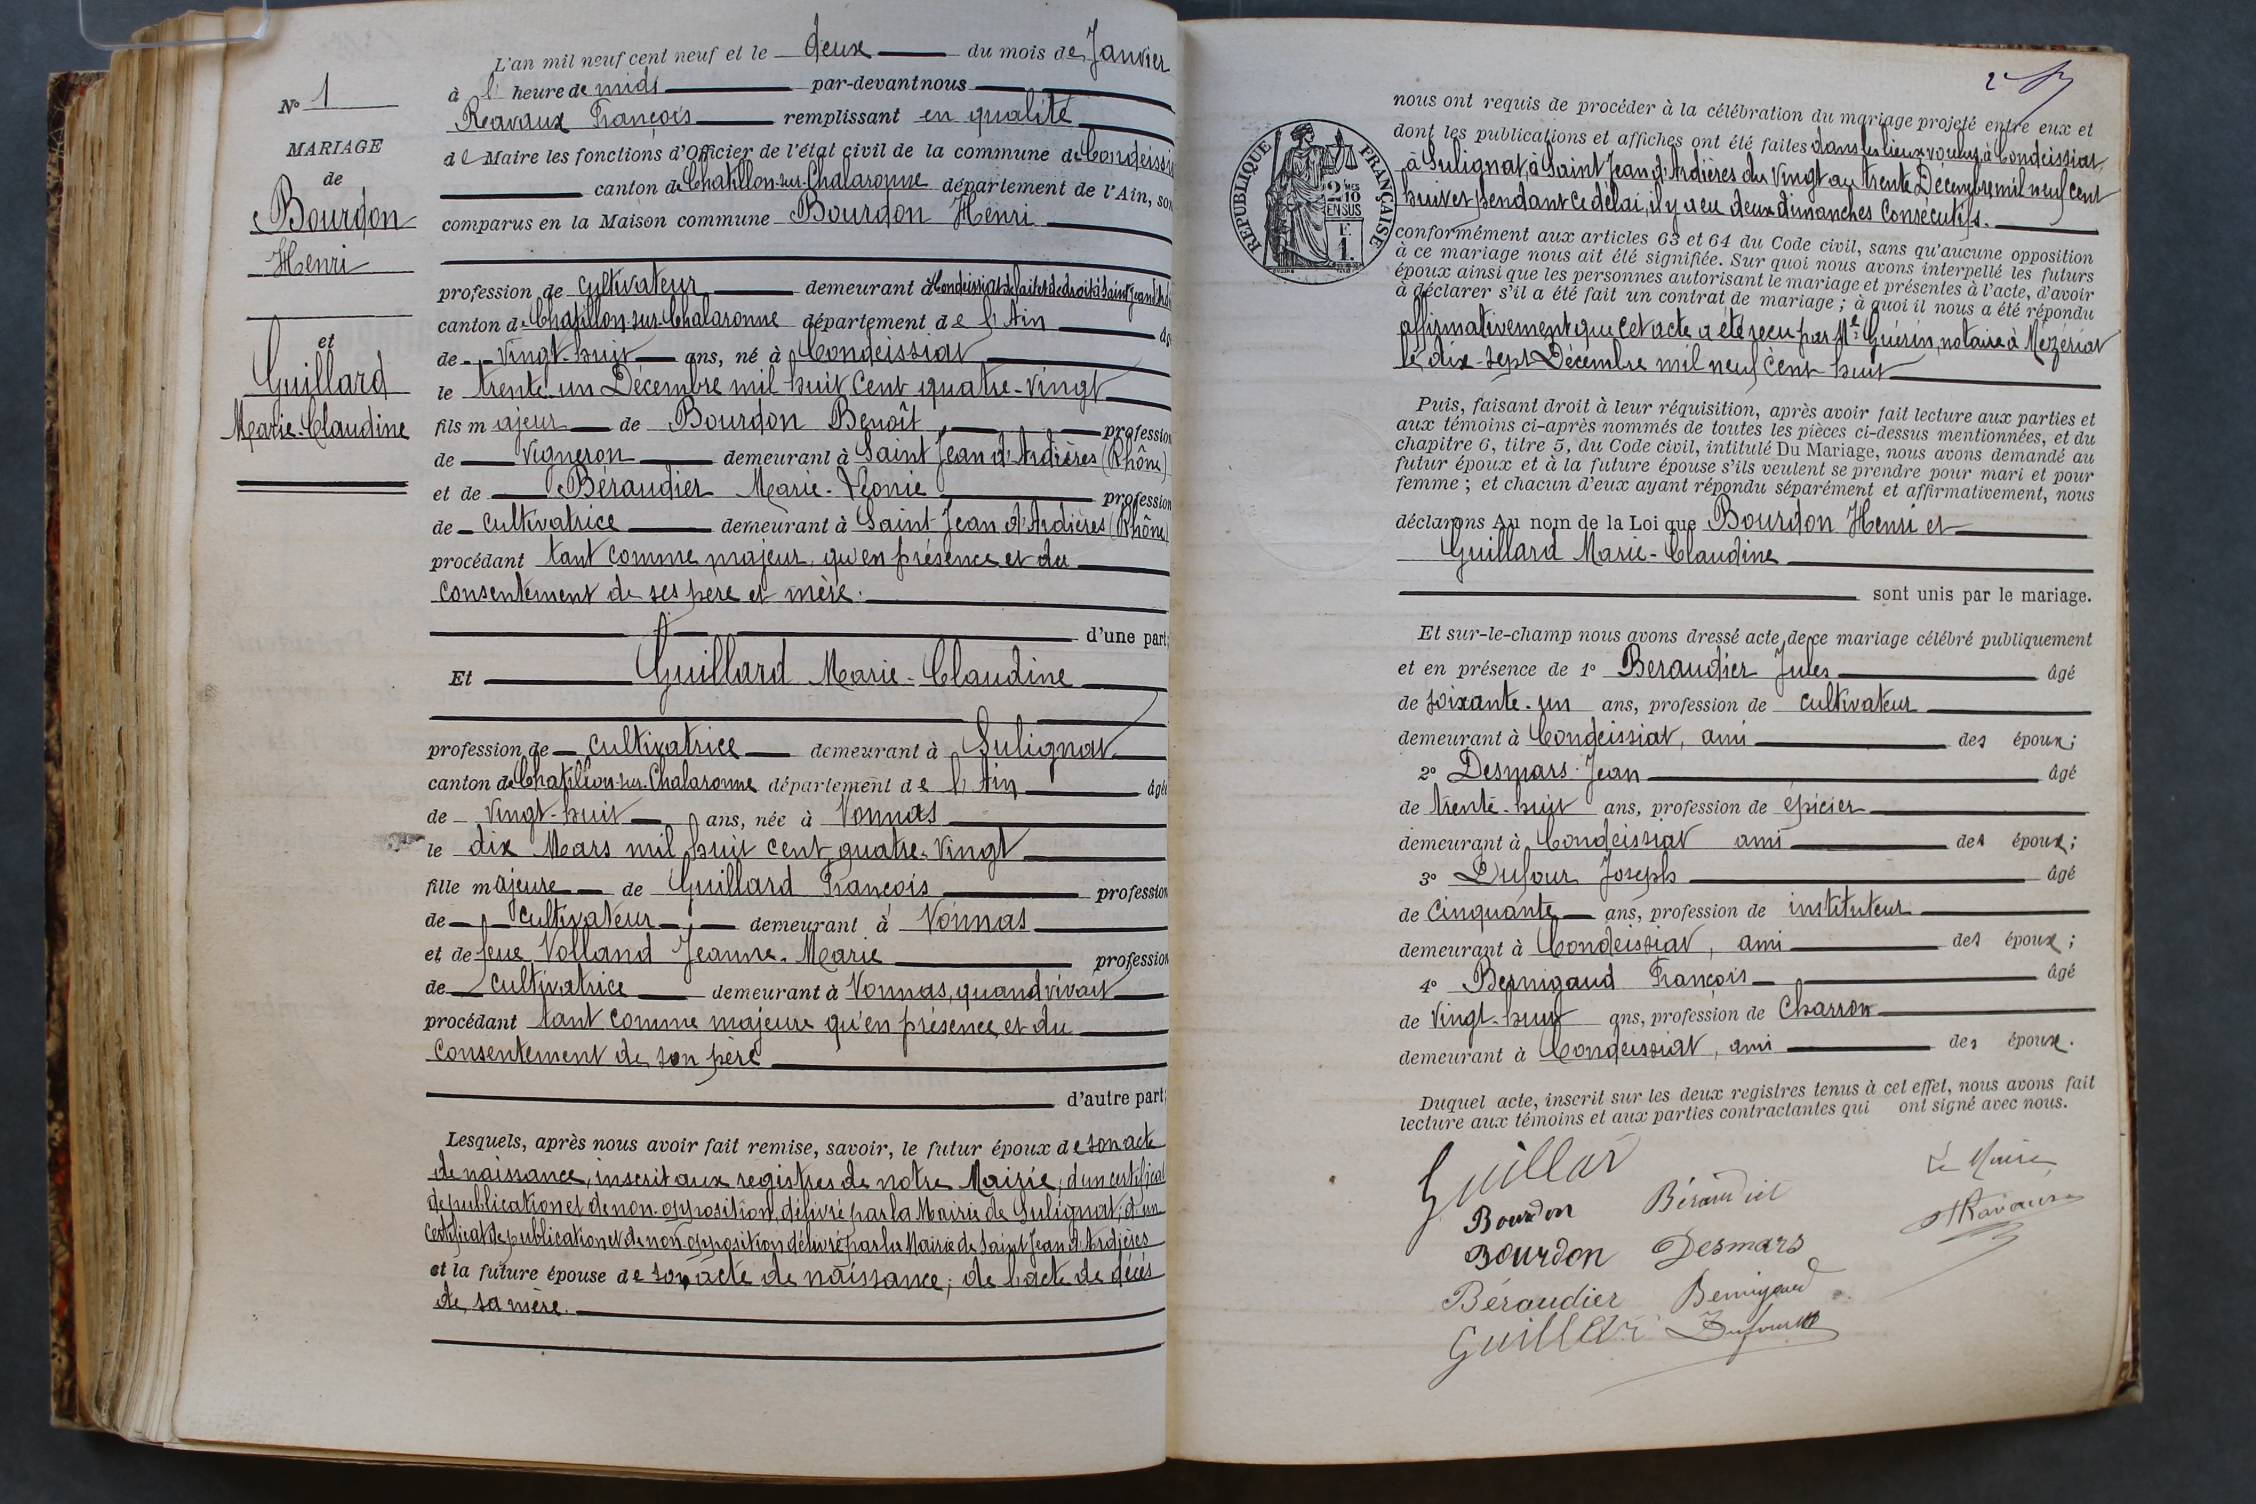 N° 1
MARIAGE
de
Bourdon
Henri
et
Guillard
Marie-Claudine
L'an mil neuf cent neuf et le deux du mois de Janvier
à l' heure de midi par-devant nous
Ravaux François remplissant en qualité
de Maire les fonctions d'Officier de l'état civil de la commune de Condeissiat
canton de Chatillon-sur-Chalaronne département de l'Ain, sont
comparus en la Maison commune Bourdon Henri
profession de cultivateur demeurant à Condeissiat de fait et de droit à Saint Jean d'Ard
canton de Chatillon-sur-Chalaronne département de l'Ain âg
de vingt-huit ans, né à Condeissiat
le trente un Décembre mil huit cent quatre-vingt
fils majeur de Bourdon Benoît profession
de Vigneron demeurant à Saint Jean d'Ardières (Rhône)
et de Béraudier Marie-Léonie profession
de cultivatrice demeurant à Saint-Jean d'Ardières (Rhône)
procédant tant comme majeur qu'en présence et du
consentement de ses père et mère.
d'une part;
Et Guillard Marie-Claudine
profession de cultivatrice demeurant à Sulignat
canton de Chatillon-sur-Chalaronne département de l'Ain âgée
de vingt-huit ans, née à Vonnas
le dix Mars mil huit cent quatre-vingt
fille majeure de Guillard François profession
de cultivateur demeurant à Vonnas
et de feue Volland Jeanne-Marie profession
de cultivatrice demeurant à Vonnas, quand vivait
procédant tant comme majeure qu'en présence et du
consentement de son père
d'autre part;
Lesquels, après nous avoir fait remise, savoir, le futur époux de son acte
de naissance, inscrit aux registres de notre Mairie, d'un certificat
de publication et de non-opposition, délivré par la Mairie de Sulignat, d'un
certificat de publication et de non opposition délivré par la Mairie de Saint Jean d'Ardières
et la future épouse de son acte de naissance; de l'acte de décès
de sa mère.
nous ont requis de procéder à la célébration du mariage projeté entre eux et
dont les publications et affiches ont été faites dans les lieux voulus à Condeissiat,
à Sulignat, à Saint Jean d'Ardières du vingt au trente Décembre mil neuf cent
huit et pendant ce délai, il y a eu deux dimanches consécutifs.
RÉPUBLIQUE FRANÇAISE
2 MES
10
EN SUS
F.
1.
conformément aux articles 63 et 64 du Code civil, sans qu'aucune opposition
à ce mariage nous ait été signifiée. Sur quoi nous avons interpellé les futurs
époux ainsi que les personnes autorisant le mariage et présentes à l'acte, d'avoir
à déclarer s'il a été fait un contrat de mariage; à quoi il nous a été répondu
affirmativement que cet acte a été reçu par Me Guérin, notaire à Mézériat
le dix-sept Décembre mil neuf cent huit
Puis, faisant droit à leur réquisition, après avoir fait lecture aux parties et
aux témoins ci-après nommés de toutes les pièces ci-dessus mentionnées, et du
chapitre 6, titre 5, du Code civil, intitulé Du Mariage, nous avons demandé au
futur époux et à la future épouse s'ils veulent se prendre pour mari et pour
femme; et chacun d'eux ayant répondu séparément et affirmativement, nous
déclarons Au nom de la Loi que Bourdon Henri et
Guillard Marie-Claudine
sont unis par le mariage.
Et sur-le-champ nous avons dressé acte de ce mariage célébré publiquement
et en présence de 1° Beraudier Jules âgé
de soixante-un ans, profession de cultivateur
demeurant à Condeissiat, ami des époux;
2° Desmars Jean âgé
de trente-huit ans, profession de épicier
demeurant à Condeissiat ami des époux;
3° Dufour Joseph âgé
de Cinquante ans, profession de instituteur
demeurant à Condeissiat, ami des époux;
4° Bernigaud François âgé
de vingt-huit ans, profession de Charron
demeurant à Condeissiat, ami des époux.
Duquel acte, inscrit sur les deux registres tenus à cet effet, nous avons fait
lecture aux témoins et aux parties contractantes qui ont signé avec nous.
Guillar
Le Maire
Bourdon Béraudier
Ravaux
Bourdon Desmars
Béraudier Bernigaud
Guillar Dufour